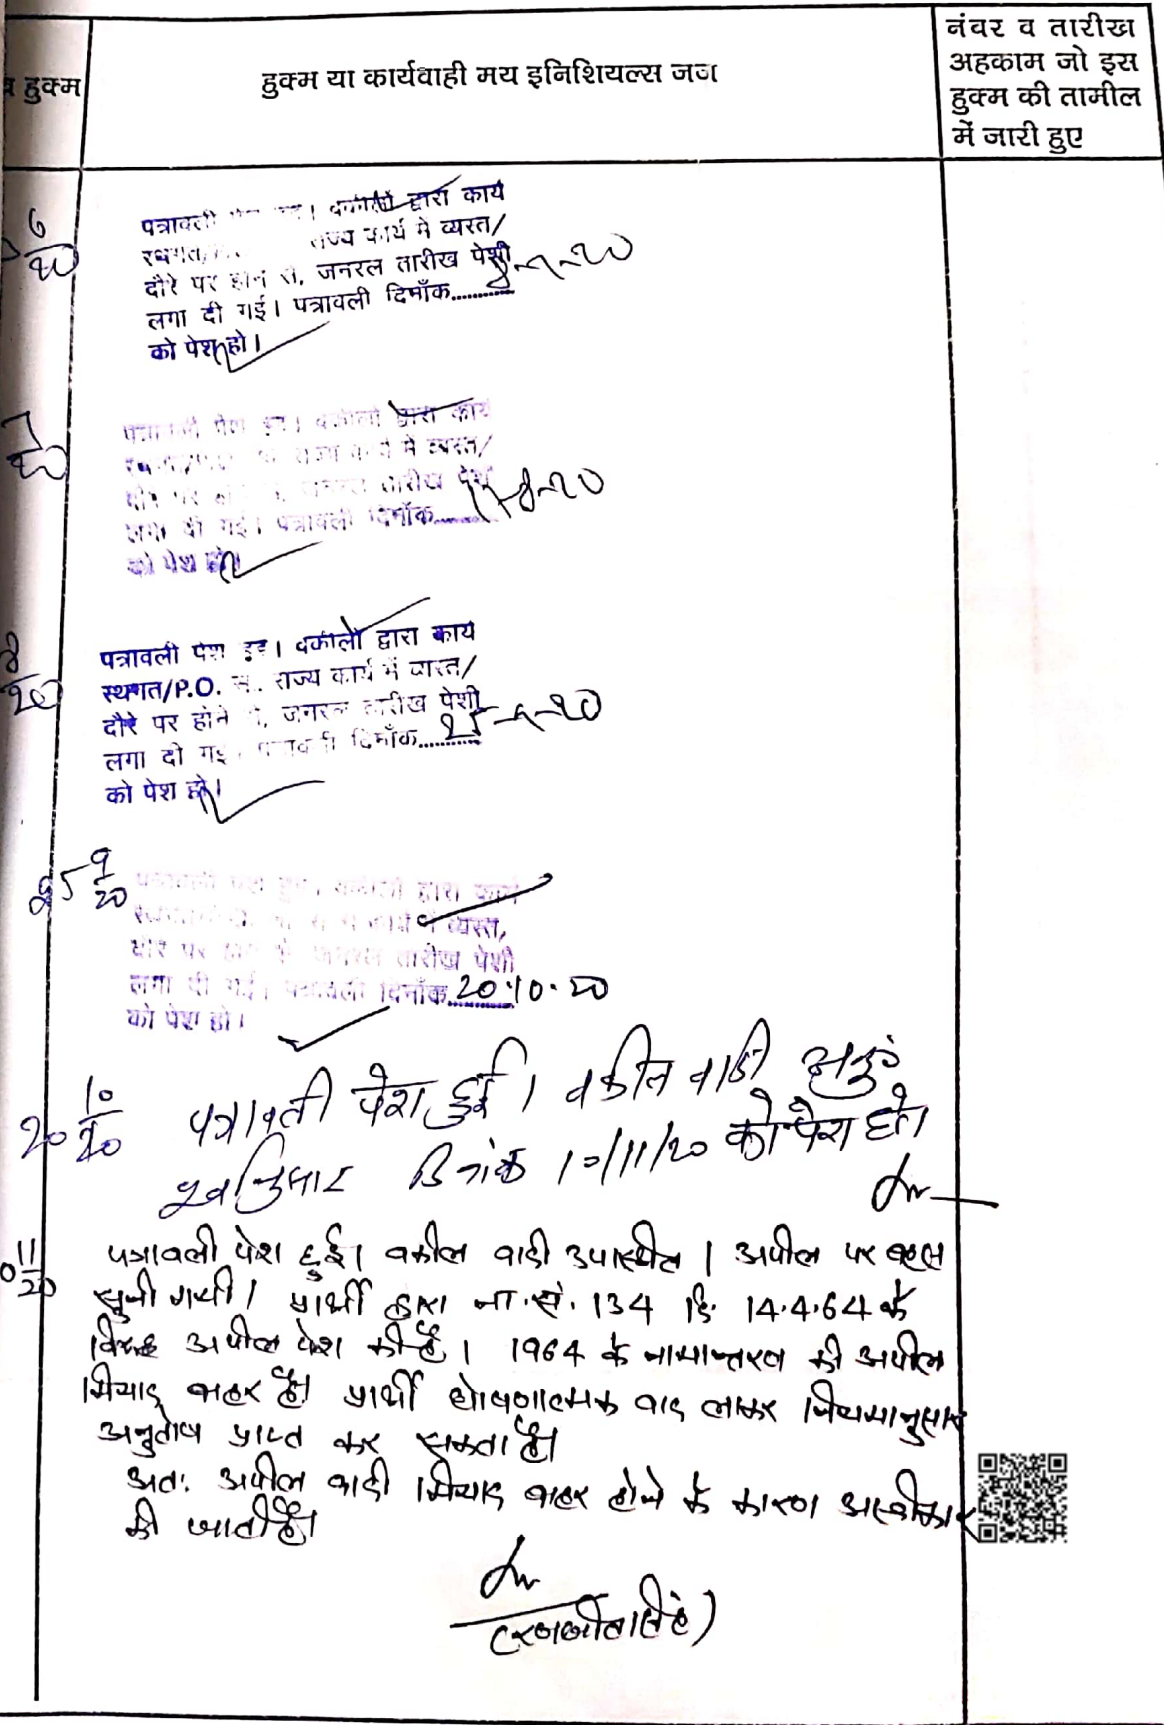 हुक्म
हुक्म या कार्यवाही मय इनिशियल्स जज
नंबर व तारीख
अहकाम जो इस
हुक्म की तामील
में जारी हुए
6/20
पत्रावली । वकीलों द्वारा कार्य
स्थगत/ राज्य कार्य में व्यस्त/
दौरे पर होने से, जनरल तारीख पेशी
लगा दी गई। पत्रावली दिनाँक.......... 8-7-20
को पेश हो।
7/20
पत्रावली पेश हुइ। वकीलों द्वारा कार्य
राज्य कार्य में व्यस्त/
दौरे पर जनरल तारीख पेशी
लगा दी गई। पत्रावली दिनाँक.......... -8-20
को पेश हो।
8/20
पत्रावली पेश हुइ। वकीलों द्वारा कार्य
स्थगत/P.O. राज्य कार्य में व्यस्त/
दौरे पर होने से, जनरल तारीख पेशी
लगा दी गइ। पत्रावली दिनाँक.......... 25-9-20
को पेश हो।
25 9/20
पत्रावली पेश हुइ। वकीलों द्वारा कार्य
कार्य में व्यस्त,
दौरे पर जनरल तारीख पेशी
लगा दी गई। पत्रावली दिनाँक.......... 20.10.20
को पेश हो।
20 10/20
पत्रावली पेश हुई। वकील वादी
दिनांक 10/11/20 को पेश हो।
0 11/20
पत्रावली पेश हुई। वकील वादी उपास्थीत। अपील पर बहस
सुनी गयी। प्रार्थी द्वारा ना.सं. 134 दि. 14.4.64 के
विरुद्ध अपील पेश की है। 1964 के नामान्तरण की अपील
मियाद बाहर है। प्रार्थी घोषणात्मक वाद लाकर नियमानुसार
अनुतोष प्राप्त कर सकता है।
अतः अपील वादी मियाद बाहर होने के कारण अस्वीकार
की जाती है।